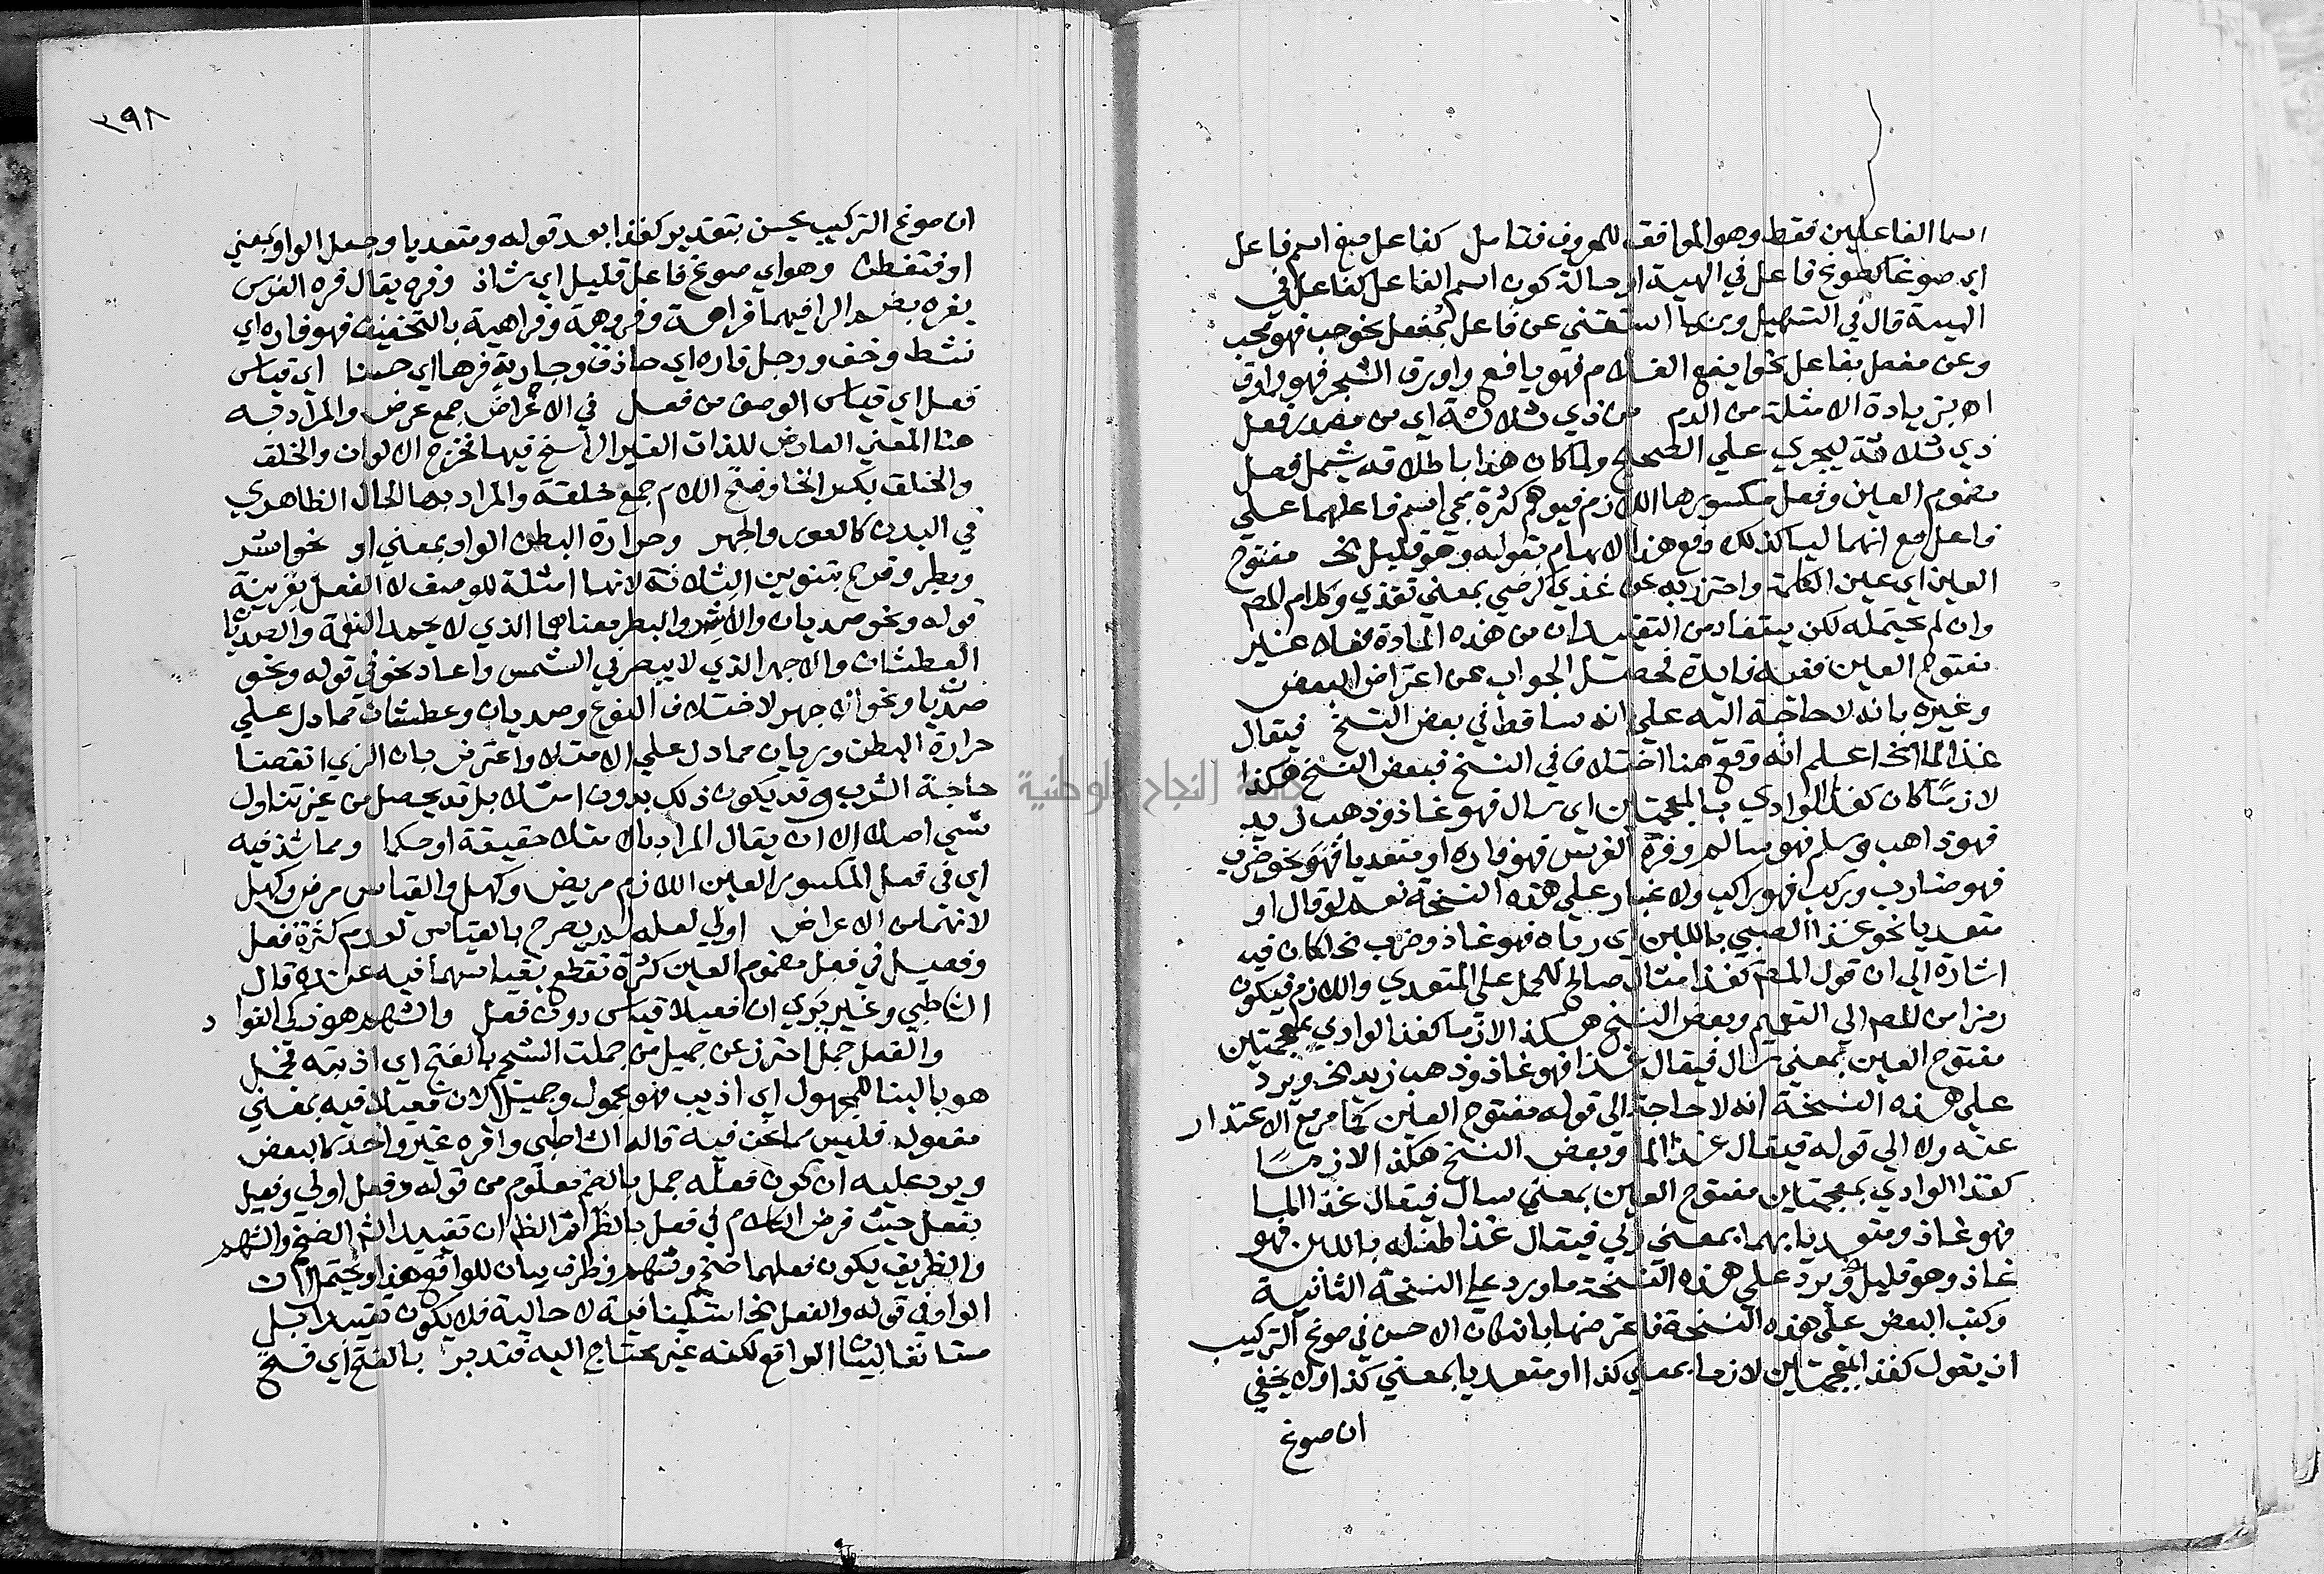 اسما الفاعلين فقط وهو الموافق للمعروف فتامل كفاعل صغ اسم فاعل
اي صوغا كصوغ فاعل في الهيية او حالة كون اسم الفاعل كفاعل في
الهيية قال في التسهيل وربما استغني عن فاعل بمفعل نحو حب فهو محب
وعن مفعل بفاعل نحو ايفع الغلام فهو يافع واورق الشجر فهو وارق
اه بزيادة الامثلة من الدم من ذي ثلاثة اي من مصدر فعل
ذي ثلاثة ليجري علي الصحيح ولما كان هذا باطلاقه يشمل فعل
مضموم العين وفعل مكسورها اللازم فيوهم كثرة مجي اسم فاعلهما علي
فاعل مع انهما ليسا كذلك دفع هذا الايهام بقوله وهو قليل الخ مفتوح
العين اي عين الكلمة واحترز به عن غذي كرضي بمعني تغذي وكلام المصم
وان لم يحتمله لكن يستفاد من التقييد ان من هذه المادة فعلا غير
مفتوح العين ففيه فايدة فحصل الجواب عن اعتراض البعض
وغيره بانه لا حاجة اليه علي انه ساقط في بعض النسخ فيقال
غذا الما الخ اعلم انه وقع هنا اختلاف في النسخ فبعض النسخ هكذا
لازما كان كغذا الوادي بالمعجمتين اي سال فهو غاذ وذهب زيد
فهو ذاهب وسلم فهو سالم وفره الفرس فهو فاره او متعديا فهو نحو ضرب
فهو ضارب وركب فهو راكب ولا غبار علي هذه النسخة نعم لو قال او
متعديا نحو غذا الصبي باللبن اي رباه فهو غاذ وضرب الخ لكان فيه
اشارة الي ان قول المصم كغذا مثال صالح للحمل علي المتعدي واللازم فيكون
رمزا من المصم الي التعميم وبعض النسخ هكذا لازما كغذا الوادي بمعجمتين
مفتوح العين بمعني سال فيقال غذا فهو غاذ وذهب زيد الخ ويرد
علي هذه النسخة انه لا حاجة الي قوله مفتوح العين كما مر مع الاعتذار
عنه ولا الي قوله فيقال غذا الما وبعض النسخ هكذا لازما
كغذا الوادي بمعجمتين مفتوح العين بمعني سال فيقال غذا الما
فهو غاذ ومتعديا بهما بمعني ربي فيقال غذا طفله باللبن فهو
غاذ وهو قليل ويرد علي هذه النسخة ما ورد علي النسخة الثانية
وكتب البعض علي هذه النسخة فاعترضها بانه كان الاحسن في صوغ التركيب
ان يقول كغذ المعجمتين لازما بمعني كذا او متعديا بمعني كذا ولا يخفي
ان صوغ
٣٩٨
ان صوغ التركيب يحسن بتقدير كغذا بعد قوله ومتعديا وجعل الواو بمعني
او فتفطن وهو اي صوغ فاعل قليل اي شاذ وفره يقال فره الفرس
يفره بضم الرا فيهما فراهة وفروهة وفراهية بالتخفيف فهو فاره اي
نشط وخف ورجل فاره اي حاذق وجارية فرها اي حسنا اي قياس
فعل اي قياس الوصف من فعل في الاعراض جمع عرض والمراد به
هنا المعني العارض للذات الغير الراسخ فيها فخرج الالوان والخلق
والخلق بكسر الخا وفتح اللام جمع خلقة والمراد بها الحال الظاهري
في البدن كالعور والجهر وحرارة البطن الواو بمعني او نحو اشر
وبطر وفرح بتنوين الثلاثة لانها امثلة للوصف لا الفعل بقرينة
قوله ونحو صديان والاشر والبطر معناهما الذي لا يحمد النعمة والصديان
العطشان والاجهر الذي لا يبصر في الشمس واعاد نحو في قوله ونحو
صديان ونحو الاجهر لاختلاف النوع وصديان وعطشان مما دل علي
حرارة البطن وريان مما دل علي الامتلا واعترض بان الري انقضا
حاجة الشرب وقد يكون ذلك بدون امتلا بل قد يحصل من غير تناول
شي اصلا الا ان يقال المراد بالامتلا حقيقة او حكما ومما شذ فيه
اي في فعل المكسور العين اللازم مريض وكهل والقياس مرض وكهل
لانهما من الاعراض اولي لعله لم يصرح بالقياس لعدم كثرة فعل
وفعيل في فعل مضموم العين كثرة تقطع بقياسهما فيه عنده قال
الشاطبي وغيره يري ان فعيلا قياس دون فعل والشهم هو ذكي الفواد
والفعل جمل احترز عن جميل من جملت الشحم بالفتح اي اذبته فجمل
هو بالبنا للمجهول اي اذيب فهو مجمول وجميل لان فعيلا فيه بمعني
مفعول فليس مما نحن فيه قاله الشاطبي واقره غير واحد كالبعض
ويرد عليه ان كون فعله جمل بالضم معلوم من قوله وفعل اولي وفعيل
بفعل حيث فرض الكلام في فعل بالظم الظ ان تقييد الشم الضخم والشهم
والظريف يكون فعلهما ضخم وشهم وظرف بيان للواقع هذا ويحتمل ان
الواو في قوله والفعل الخ استينافية لا حالية فلا يكون تقييدا بل
مستانفا لبيان الواقع لكنه غير محتاج اليه فتدبر بالفتح اي فتح